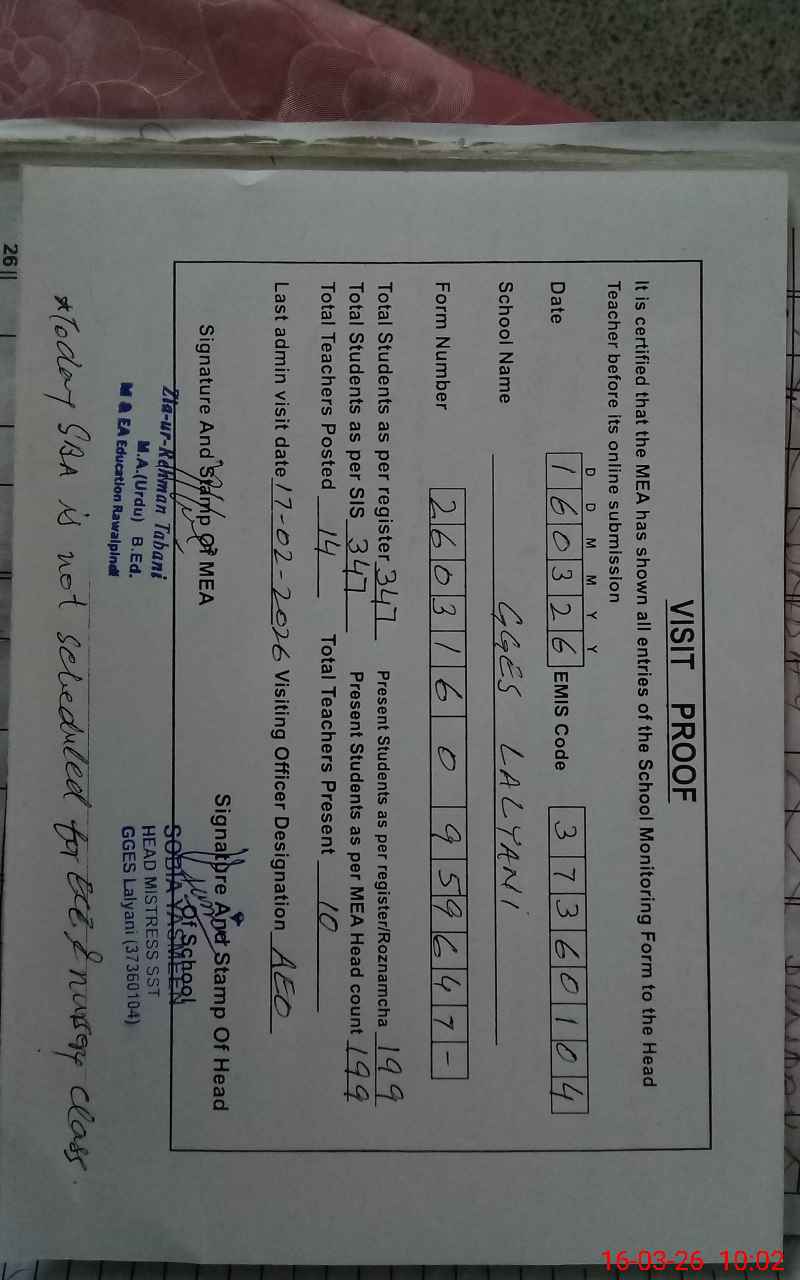 VISIT PROOF
It is certified that the MEA has shown all entries of the School Monitoring Form to the Head
Teacher before its online submission
D D M M Y Y
Date 1 6 0 3 2 6 EMIS Code 3 7 3 6 0 1 0 4
School Name GGES LALYANI
Form Number 2 6 0 3 1 6 0 0 9 5 9 6 4 7 -
Total Students as per register 347 Present Students as per register/Roznamcha 199
Total Students as per SIS 347 Present Students as per MEA Head count 199
Total Teachers Posted 14 Total Teachers Present 10
Last admin visit date 17-02-2026 Visiting Officer Designation AEO
Signature And Stamp Of MEA Signature And Stamp Of Head
Of School
Zia-ur-Rehman Tabani SOBIA YASMEEN
M.A.(Urdu) B.Ed. HEAD MISTRESS SST
M & EA Education Rawalpindi GGES Lalyani (37360104)
*Today SBA is not scheduled for & nursery class.
26
16-03-26 10:02